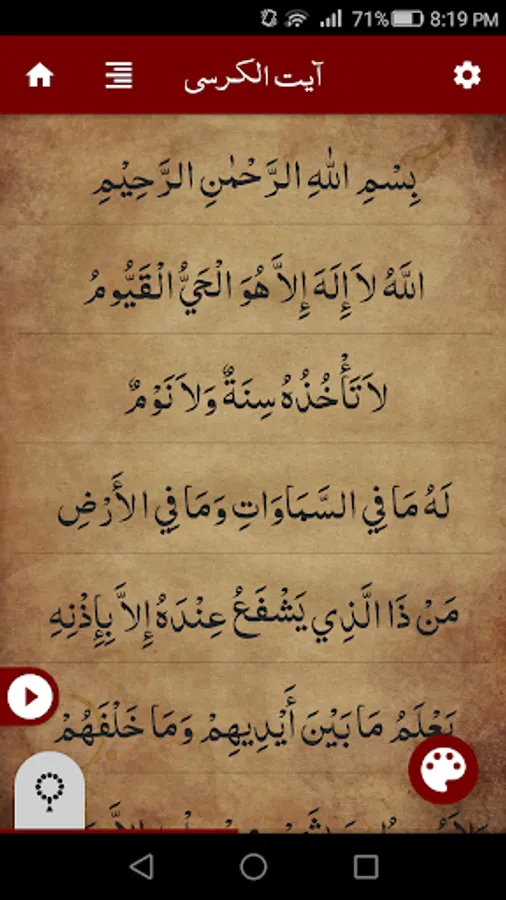 71% 8:19 PM
آیت الکرسی
بِسْمِ اللهِ الرَّحْمٰنِ الرَّحِيْمِ
اللَّهُ لاَ إِلَهَ إِلاَّ هُوَ الْحَيُّ الْقَيُّومُ
لاَ تَأْخُذُهُ سِنَةٌ وَلاَ نَوْمٌ
لَهُ مَا فِي السَّمَاوَاتِ وَمَا فِي الأَرْضِ
مَنْ ذَا الَّذِي يَشْفَعُ عِنْدَهُ إِلاَّ بِإِذْنِهِ
يَعْلَمُ مَا بَيْنَ أَيْدِيهِمْ وَمَا خَلْفَهُمْ